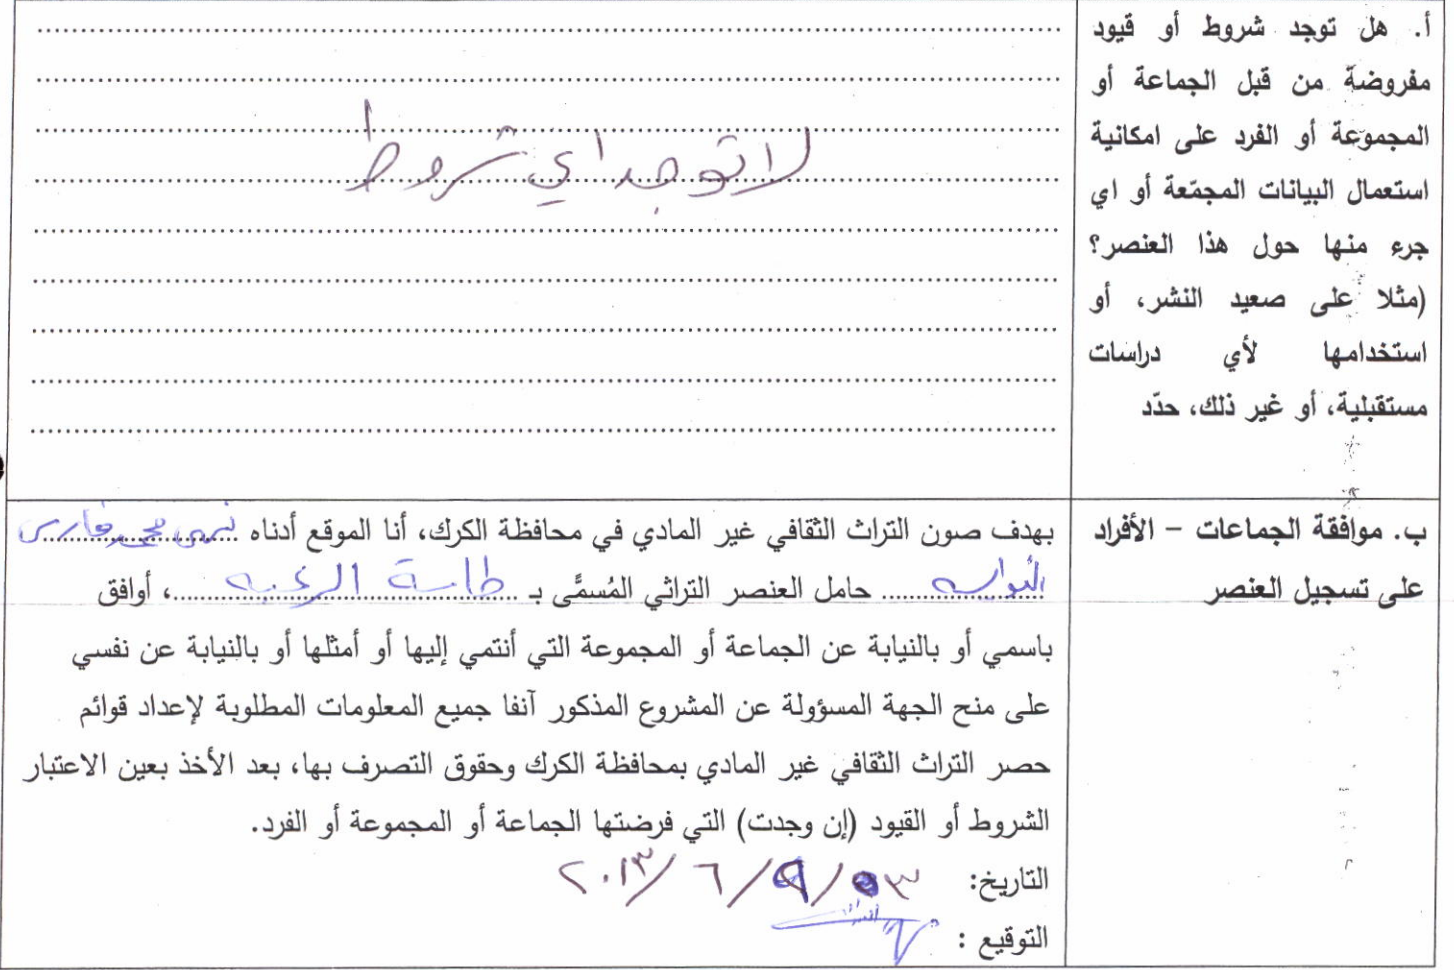 أ. هل توجد شروط أو قيود
مفروضة من قبل الجماعة أو
المجموعة أو الفرد على امكانية
استعمال البيانات المجمّعة أو اي
جرء منها حول هذا العنصر؟
(مثلا على صعيد النشر، أو
استخدامها لأي دراسات
مستقبلية، أو غير ذلك، حدّد
لا توجد اي شروط
ب. موافقة الجماعات – الأفراد
على تسجيل العنصر
بهدف صون التراث الثقافي غير المادي في محافظة الكرك، أنا الموقع أدناه محمد فارس
النوايسه حامل العنصر التراثي المُسمَّى بـ طاسة الرعبه، أوافق
باسمي أو بالنيابة عن الجماعة أو المجموعة التي أنتمي إليها أو أمثلها أو بالنيابة عن نفسي
على منح الجهة المسؤولة عن المشروع المذكور آنفا جميع المعلومات المطلوبة لإعداد قوائم
حصر التراث الثقافي غير المادي بمحافظة الكرك وحقوق التصرف بها، بعد الأخذ بعين الاعتبار
الشروط أو القيود (إن وجدت) التي فرضتها الجماعة أو المجموعة أو الفرد.
التاريخ: ٢٠١٣/٦/
التوقيع :